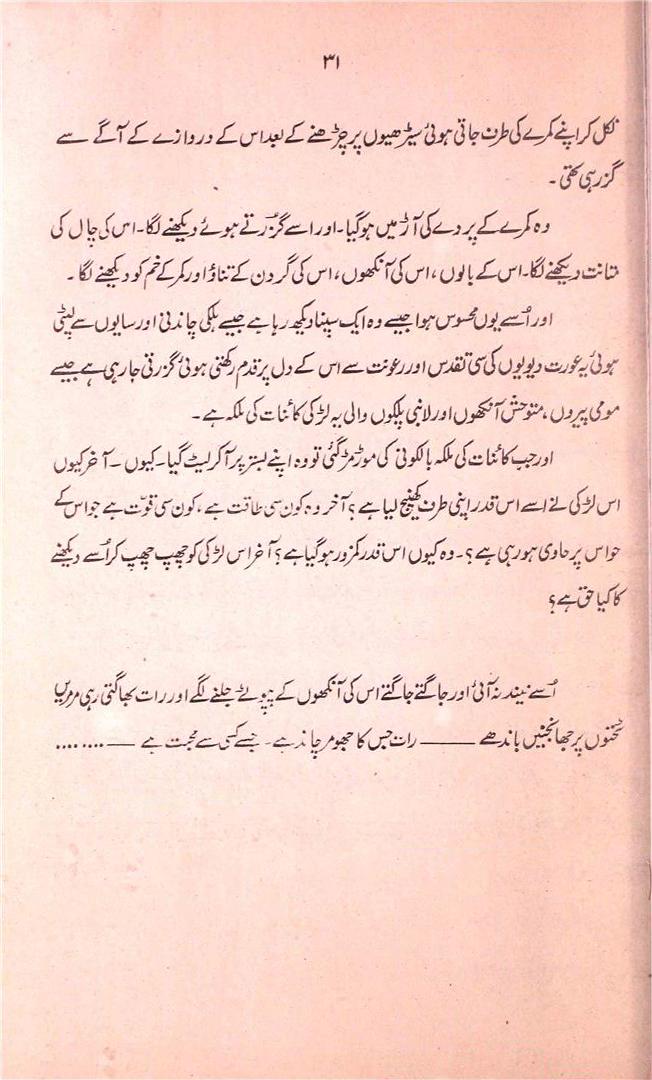 ۳۱
نکل کر اپنے کمرے کی طرف جاتی ہوئی سیڑھیوں پر چڑھنے کے بعد اس کے دروازے کے آگے سے
گزر رہی تھی۔
وہ کمرے کے پردے کی آڑ میں ہو گیا۔ اور اسے گزرتے ہوئے دیکھنے لگا۔ اس کی چال کی
متانت دیکھنے لگا۔ اس کے بالوں، اس کی آنکھوں، اس کی گردن کے تناؤ اور کمر کے خم کو دیکھنے لگا۔
اور اُسے یوں محسوس ہوا جیسے وہ ایک سپنا دیکھ رہا ہے جیسے ہلکی چاندنی اور سایوں سے لپٹی
ہوئی یہ عورت دیویوں کی سی تقدس اور رعونت سے اس کے دل پر قدم رکھتی ہوئی گزرتی جا رہی ہے جیسے
مومی پیروں، متوحش آنکھوں اور لانبی پلکوں والی یہ لڑکی کائنات کی ملکہ ہے۔
اور جب کائنات کی ملکہ بالکونی کی موڑ مڑ گئی تو وہ اپنے بستر پر آ کر لیٹ گیا۔ کیوں۔ آخر کیوں
اس لڑکی نے اسے اس قدر اپنی طرف کھینچ لیا ہے؟ آخر وہ کون سی طاقت ہے، کون سی قوّت ہے جو اس کے
حواس پر حاوی ہو رہی ہے؟۔ وہ کیوں اس قدر کمزور ہو گیا ہے؟ آخر اس لڑکی کو چھپ چھپ کر اُسے دیکھنے
کا کیا حق ہے؟
اُسے نیند نہ آئی اور جاگتے جاگتے اس کی آنکھوں کے پپوٹے جلنے لگے اور رات بھاگتی رہی مرمریں
ٹخنوں پر جھانجھنیں باندھے ——— رات جس کا جھومر چاند ہے۔ جسے کسی سے محبت ہے —— ........